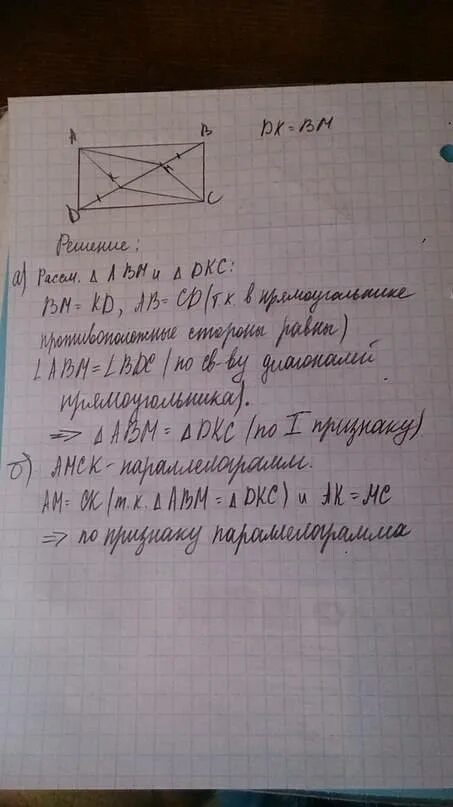 A
B
DK = BM
K
M
D
C
Решение:
а) Рассм. △ ABM и △ DKC:
BM = KD, AB = CD (т.к. в прямоугольнике
противоположные стороны равны)
∠ABM = ∠BDC (по св-ву диагоналей
прямоугольника).
⇒ △ ABM = △ DKC (по I признаку)
б) AMCK - параллелограмм.
AM = CK (т.к. △ABM = △DKC) и AK = MC
⇒ по признаку параллелограмма